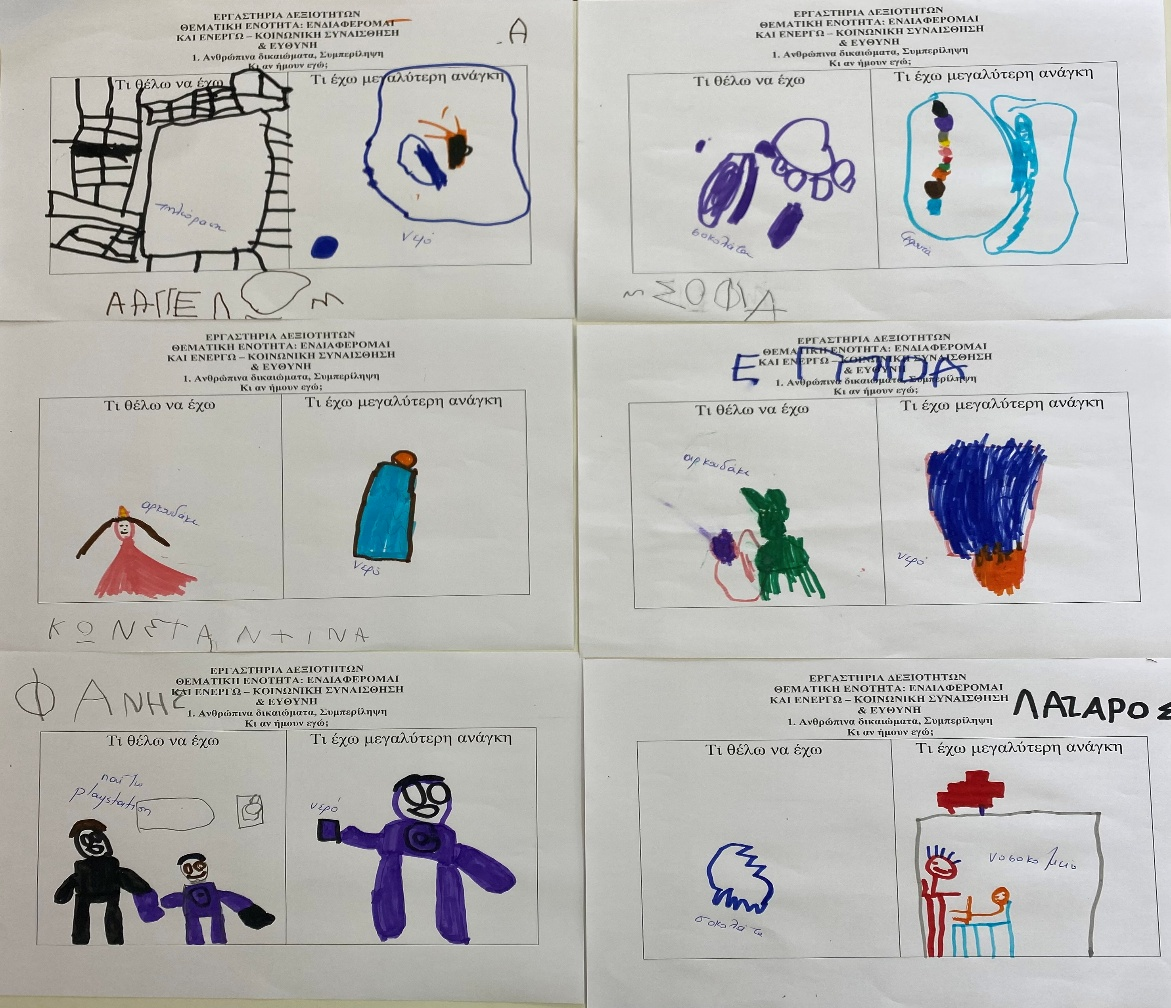 ΕΡΓΑΣΤΗΡΙΑ ΔΕΞΙΟΤΗΤΩΝ
ΘΕΜΑΤΙΚΗ ΕΝΟΤΗΤΑ: ΕΝΔΙΑΦΕΡΟΜΑΙ
ΚΑΙ ΕΝΕΡΓΩ – ΚΟΙΝΩΝΙΚΗ ΣΥΝΑΙΣΘΗΣΗ
& ΕΥΘΥΝΗ
Α
1. Ανθρώπινα δικαιώματα, Συμπερίληψη
Κι αν ήμουν εγώ;
Τι θέλω να έχω
Τι έχω μεγαλύτερη ανάγκη
τηλεόραση
νερό
ΕΡΓΑΣΤΗΡΙΑ ΔΕΞΙΟΤΗΤΩΝ
ΘΕΜΑΤΙΚΗ ΕΝΟΤΗΤΑ: ΕΝΔΙΑΦΕΡΟΜΑΙ
ΚΑΙ ΕΝΕΡΓΩ – ΚΟΙΝΩΝΙΚΗ ΣΥΝΑΙΣΘΗΣΗ
& ΕΥΘΥΝΗ
1. Ανθρώπινα δικαιώματα, Συμπερίληψη
Κι αν ήμουν εγώ;
Τι θέλω να έχω
Τι έχω μεγαλύτερη ανάγκη
σοκολάτα
ΣΟΦΙΑ
ΕΡΓΑΣΤΗΡΙΑ ΔΕΞΙΟΤΗΤΩΝ
ΘΕΜΑΤΙΚΗ ΕΝΟΤΗΤΑ: ΕΝΔΙΑΦΕΡΟΜΑΙ
ΚΑΙ ΕΝΕΡΓΩ – ΚΟΙΝΩΝΙΚΗ ΣΥΝΑΙΣΘΗΣΗ
& ΕΥΘΥΝΗ
1. Ανθρώπινα δικαιώματα, Συμπερίληψη
Κι αν ήμουν εγώ;
Τι θέλω να έχω
Τι έχω μεγαλύτερη ανάγκη
αρκουδάκι
νερό
ΚΩΝΣΤΑΝΤΙΝΑ
ΕΡΓΑΣΤΗΡΙΑ ΔΕΞΙΟΤΗΤΩΝ
ΘΕΜΑΤΙΚΗ ΕΝΟΤΗΤΑ: ΕΝΔΙΑΦΕΡΟΜΑΙ
ΚΑΙ ΕΝΕΡΓΩ – ΚΟΙΝΩΝΙΚΗ ΣΥΝΑΙΣΘΗΣΗ
& ΕΥΘΥΝΗ
1. Ανθρώπινα δικαιώματα, Συμπερίληψη
Κι αν ήμουν εγώ;
Τι θέλω να έχω
Τι έχω μεγαλύτερη ανάγκη
αρκουδάκι
νερό
ΦΑΝΗΣ
ΕΡΓΑΣΤΗΡΙΑ ΔΕΞΙΟΤΗΤΩΝ
ΘΕΜΑΤΙΚΗ ΕΝΟΤΗΤΑ: ΕΝΔΙΑΦΕΡΟΜΑΙ
ΚΑΙ ΕΝΕΡΓΩ – ΚΟΙΝΩΝΙΚΗ ΣΥΝΑΙΣΘΗΣΗ
& ΕΥΘΥΝΗ
1. Ανθρώπινα δικαιώματα, Συμπερίληψη
Κι αν ήμουν εγώ;
Τι θέλω να έχω
Τι έχω μεγαλύτερη ανάγκη
playstation
νερό
ΕΡΓΑΣΤΗΡΙΑ ΔΕΞΙΟΤΗΤΩΝ
ΘΕΜΑΤΙΚΗ ΕΝΟΤΗΤΑ: ΕΝΔΙΑΦΕΡΟΜΑΙ
ΚΑΙ ΕΝΕΡΓΩ – ΚΟΙΝΩΝΙΚΗ ΣΥΝΑΙΣΘΗΣΗ
& ΕΥΘΥΝΗ
ΛΑΖΑΡΟΣ
1. Ανθρώπινα δικαιώματα, Συμπερίληψη
Κι αν ήμουν εγώ;
Τι θέλω να έχω
Τι έχω μεγαλύτερη ανάγκη
σοκολάτα
νοσοκομειο